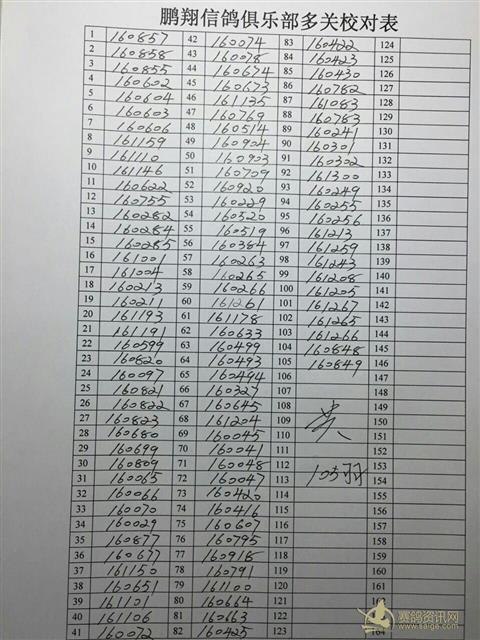 鹏翔信鸽俱乐部多关校对表
1 160857 42 160074 83 160422 124
2 160858 43 160078 84 160423 125
3 160855 44 160674 85 160430 126
4 160602 45 160673 86 160782 127
5 160604 46 161135 87 161083 128
6 160603 47 160769 88 160783 129
7 160606 48 160514 89 160241 130
8 161159 49 160904 90 160301 131
9 161110 50 160903 91 160302 132
10 161146 51 160709 92 161300 133
11 160622 52 160920 93 160249 134
12 160755 53 160229 94 160255 135
13 160282 54 160320 95 160256 136
14 160284 55 160519 96 161213 137
15 160285 56 160384 97 161259 138
16 161001 57 160263 98 161243 139
17 161004 58 160265 99 161208 140
18 160213 59 160266 100 161205 141
19 160211 60 161261 101 161267 142
20 161193 61 161178 102 161265 143
21 161191 62 160633 103 161266 144
22 160599 63 160499 104 160848 145
23 160820 64 160493 105 160849 146
24 160097 65 160494 106 147
25 160821 66 160327 107 148
26 160822 67 160645 108 149
27 160823 68 161204 109 共 150
28 160680 69 160045 110 151
29 160699 70 160041 111 152
30 160809 71 160048 112 153
31 160065 72 160047 113 105羽 154
32 160066 73 160420 114 155
33 160070 74 160416 115 156
34 160029 75 160607 116 157
35 160877 76 160795 117 158
36 160677 77 160918 118 159
37 161150 78 160791 119 160
38 160651 79 161100 120 161
39 161101 80 160664 121 162
40 161106 81 160663 122 163
41 160072 82 160425 123 164
赛鸽资讯网
www.saige.com